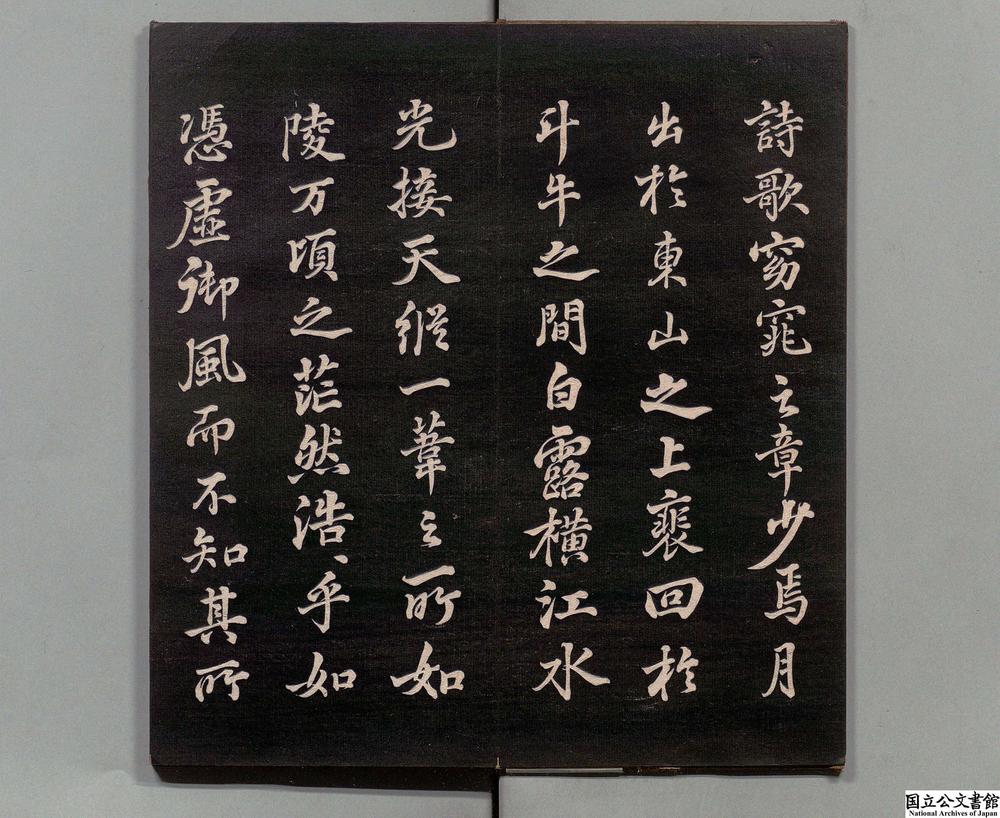 詩歌窈窕之章少焉月
出於東山之上裴回於
斗牛之間白露橫江水
光接天縱一葦之所如
陵万頃之茫然浩〻乎如
馮虛御風而不知其所
国立公文書館
National Archives of Japan